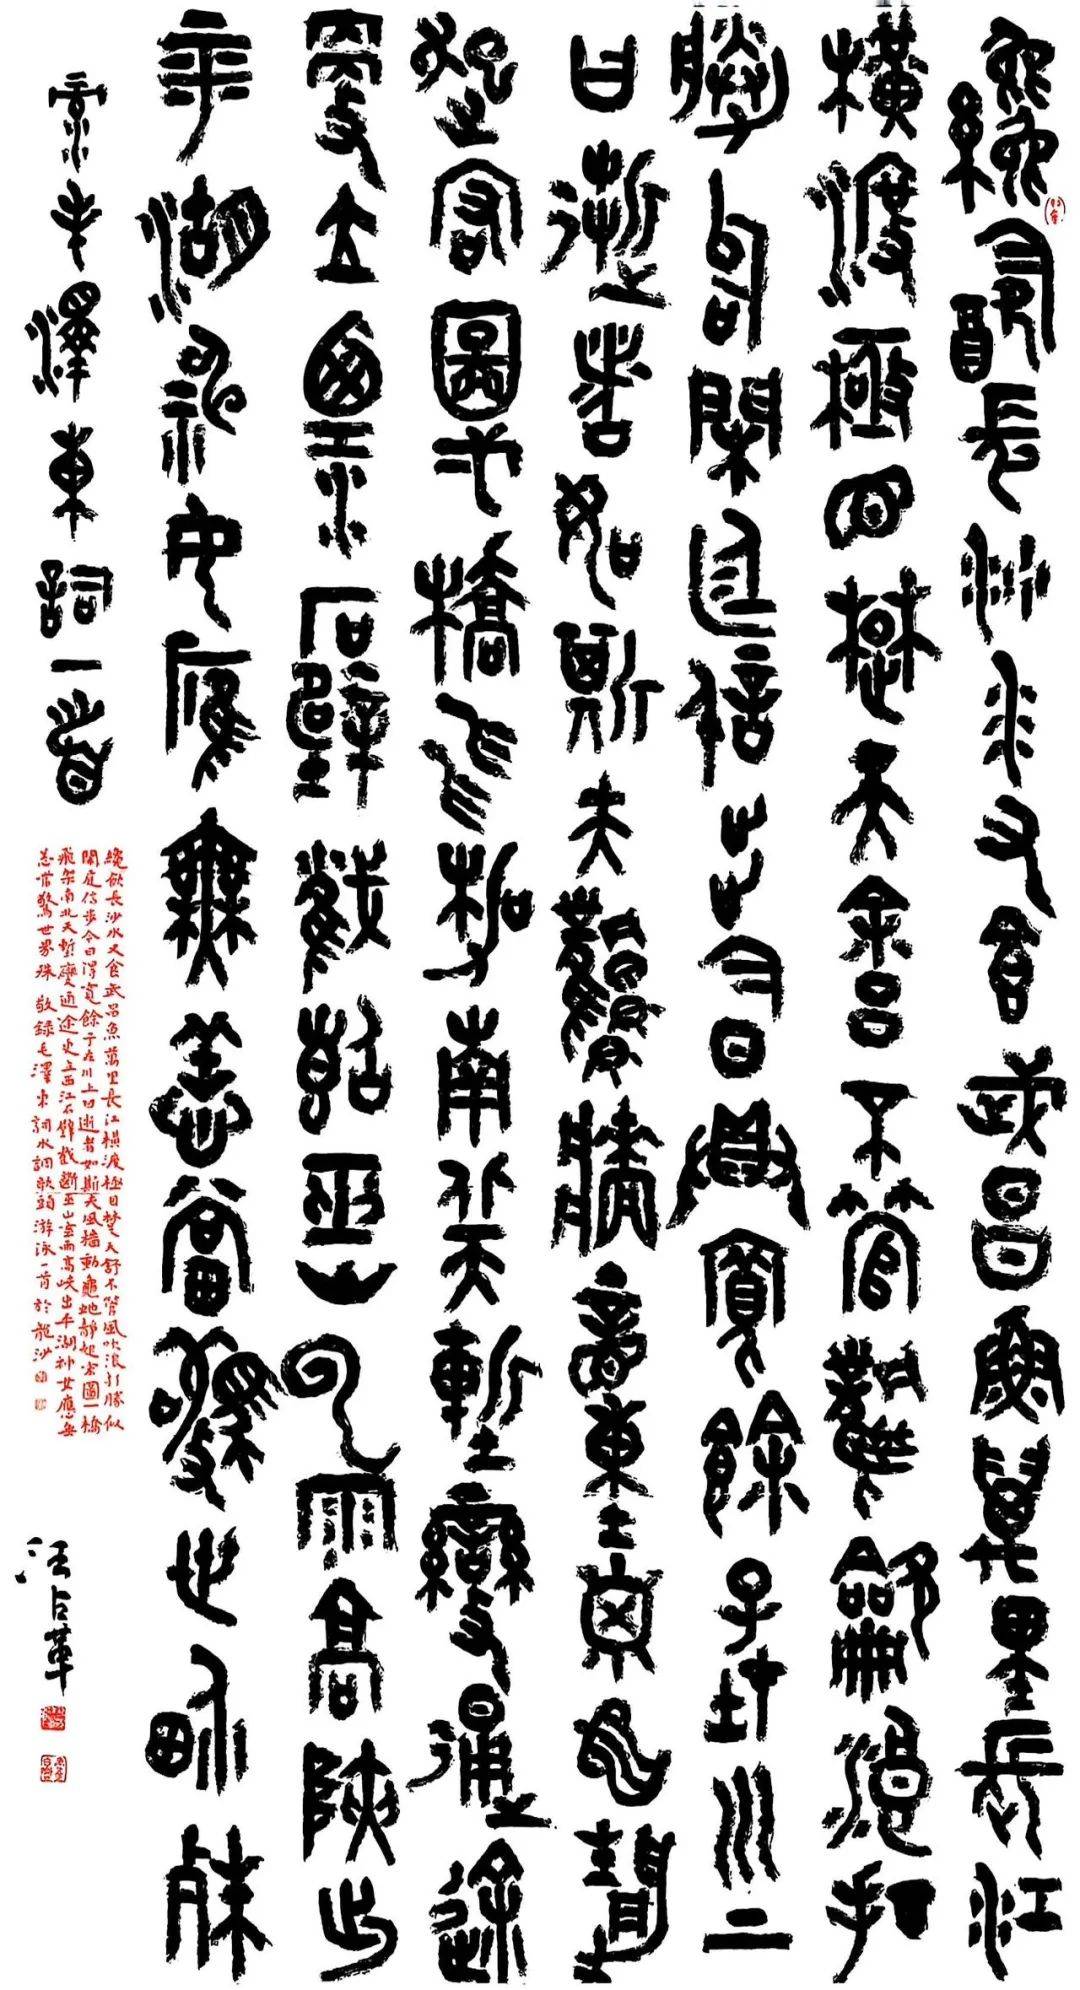 纔飲長沙水又食武昌魚萬里長江
橫渡極目楚天舒不管風吹浪打
勝似閑庭信步今日得寬餘子在川上
曰逝者如斯夫風檣動龜蛇靜
起宏圖一橋飛架南北天塹變通途
更立西江石壁截斷巫山雲雨高峽出
平湖神女應無恙當驚世界殊
录毛澤東詞一首
纔飲長沙水又食武昌魚萬里長江橫渡極目楚天舒不管風吹浪打勝似
閑庭信步今日得寬餘子在川上曰逝者如斯夫風檣動龜蛇靜起宏圖一橋
飛架南北天塹變通途更立西江石壁截斷巫山雲雨高峽出平湖神女應無
恙當驚世界殊 敬錄毛澤東詞水調歌頭游泳一首於龍沙
汪占革